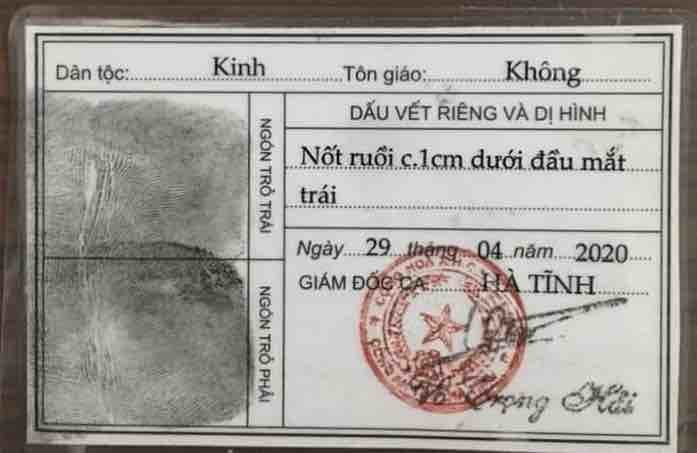 Dân tộc: Kinh Tôn giáo: Không
NGÓN TRỎ TRÁI
NGÓN TRỎ PHẢI
DẤU VẾT RIÊNG VÀ DỊ HÌNH
Nốt ruồi c.1cm dưới đầu mắt
trái
Ngày 29 tháng 04 năm 2020
GIÁM ĐỐC CA HÀ TĨNH
Trọng Hải